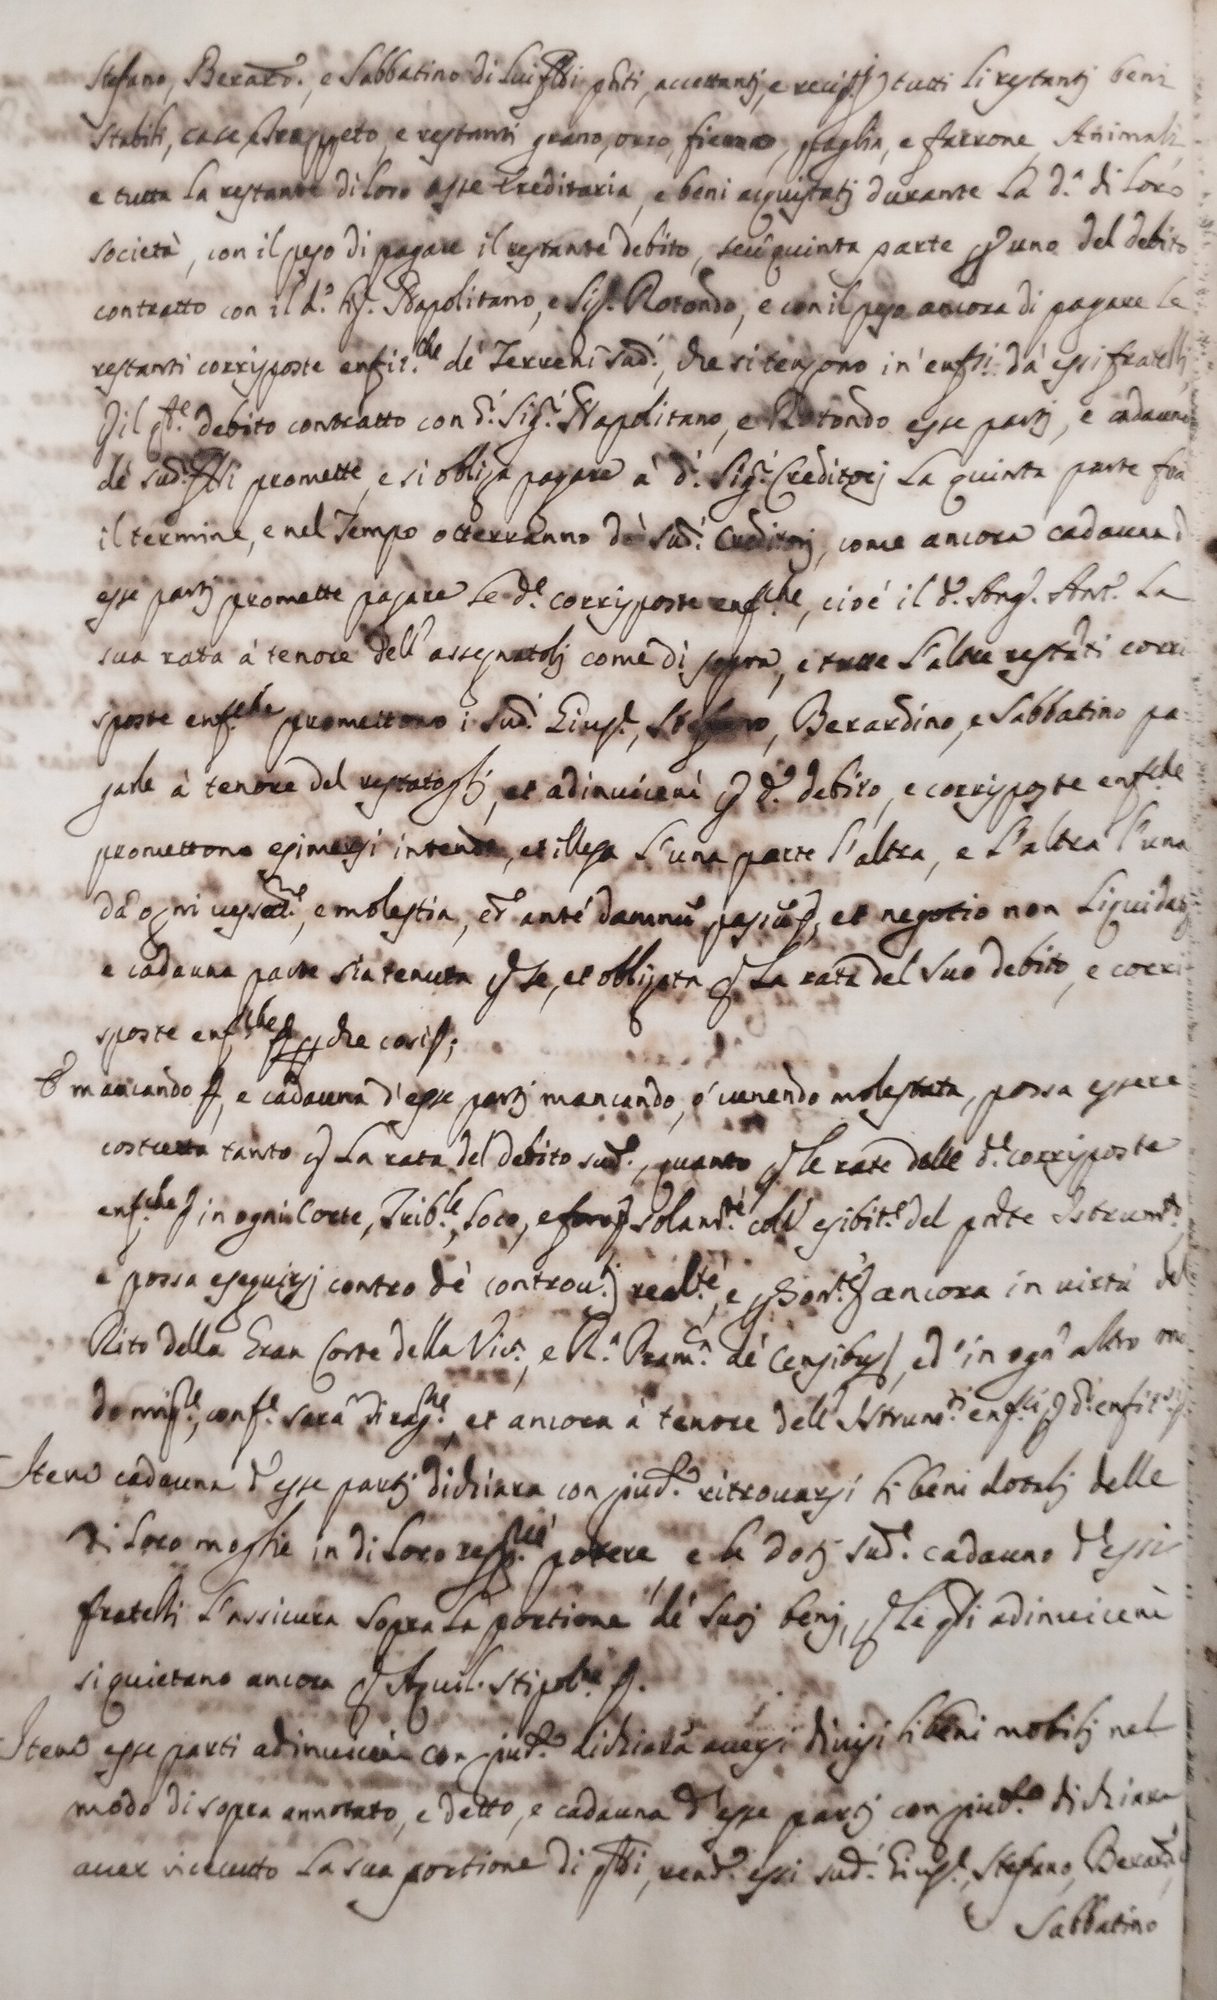 Stefano, Berard.º, e Sabbatino di lui f̃fli p̃nti, accettantj, e tutti li restantj beni
stabili, case, e restanti grano, orzo, fieno, paglia, e farrone, Animali,
e tutta la restante di loro asse Ereditaria, e beni acquistatj durante la d.ª di loro
società, con il peso di pagare il restante debito, seu quinta parte p uno del debito
contratto con il d.º Sig.r Napolitano, e Sig.r Rotondo, e con il peso ancora di pagare le
restanti corrisposte enfit.che de' Terreni sud.i, che si tengono in enfi: da essi fratelli,
p il q.le debito contratto con d.i Sig.i Napolitano, e Rotondo esse partj, e cadauno
de' sud.i promette, e si obliga pagare à d.i Sig.i Creditorj la quinta parte fra
il termine, e nel Tempo otterranno da sud.i Creditorj, come ancora cadauna d'
esse partj promette pagare le d.e corrisposte enf.che, cioè il d.º Ang.º Ant.º la
sua rata à tenore dell'assegnatolj come di sopra, e tutte l'altre restãti corri
sposte enf.che promettono i sud.i Gius.e, Stefano, Berardino, e Sabbatino pa-
garle à tenore del restatoglj, et adinvicem p d.º debito, e corrisposte enf.che
promettono esimersi indenne, et illesa l'una parte l'altra, e l'altra l'una
da ogni vessat.ne, e molestia, et ante damnũ passũ, et negotio non liquidato
e cadauna parte sia tenuta p se, et obligata p la rata del suo debito, e corri-
sposte enf.che p che così;
E mancando, e cadauna d'esse partj mancando, ò venendo molestata, possa essere
costretta tanto p la rata del debito sud.º, quanto p le rate delle d.e corrisposte
enf.che in ogni Corte, Trib.le, Loco, e foro solam.te coll'esibit.e del p̃nte Istrum.to,
e possa eseguirsj contro de' controv.tj real.te, e p̃son.te ancora in virtù del
Rito della Gran Corte della Vic.ª, e R.ª Pram.ca de Censibus, ed in ogn'altro mo
do migl.e, conf.e sarà di rag.ne, et ancora à tenore dell'Istrum.ti enf.ci p d.i
Item cadauna d'esse partj dichiara con giud.º ritrovarsi li beni dotalj delle
di loro moglie in di loro respe.ve potere, e le dotj sud.e cadauno d'essi
fratelli l'assicura sopra la portione de' suoj benj, p le q̃li adinvicem
si quietano ancora p Aquil. stipol.ne.
Item esse parti adinvicem con giud.º dichiarã aversi divisi li beni mobilj nel
modo di sopra annotato, e detto, e cadauna d'esse partj con giud.º dichiara
aver ricevuto la sua portione di, rend.º essi sud.i Gius.e, Stefano, Berard.º
Sabbatino